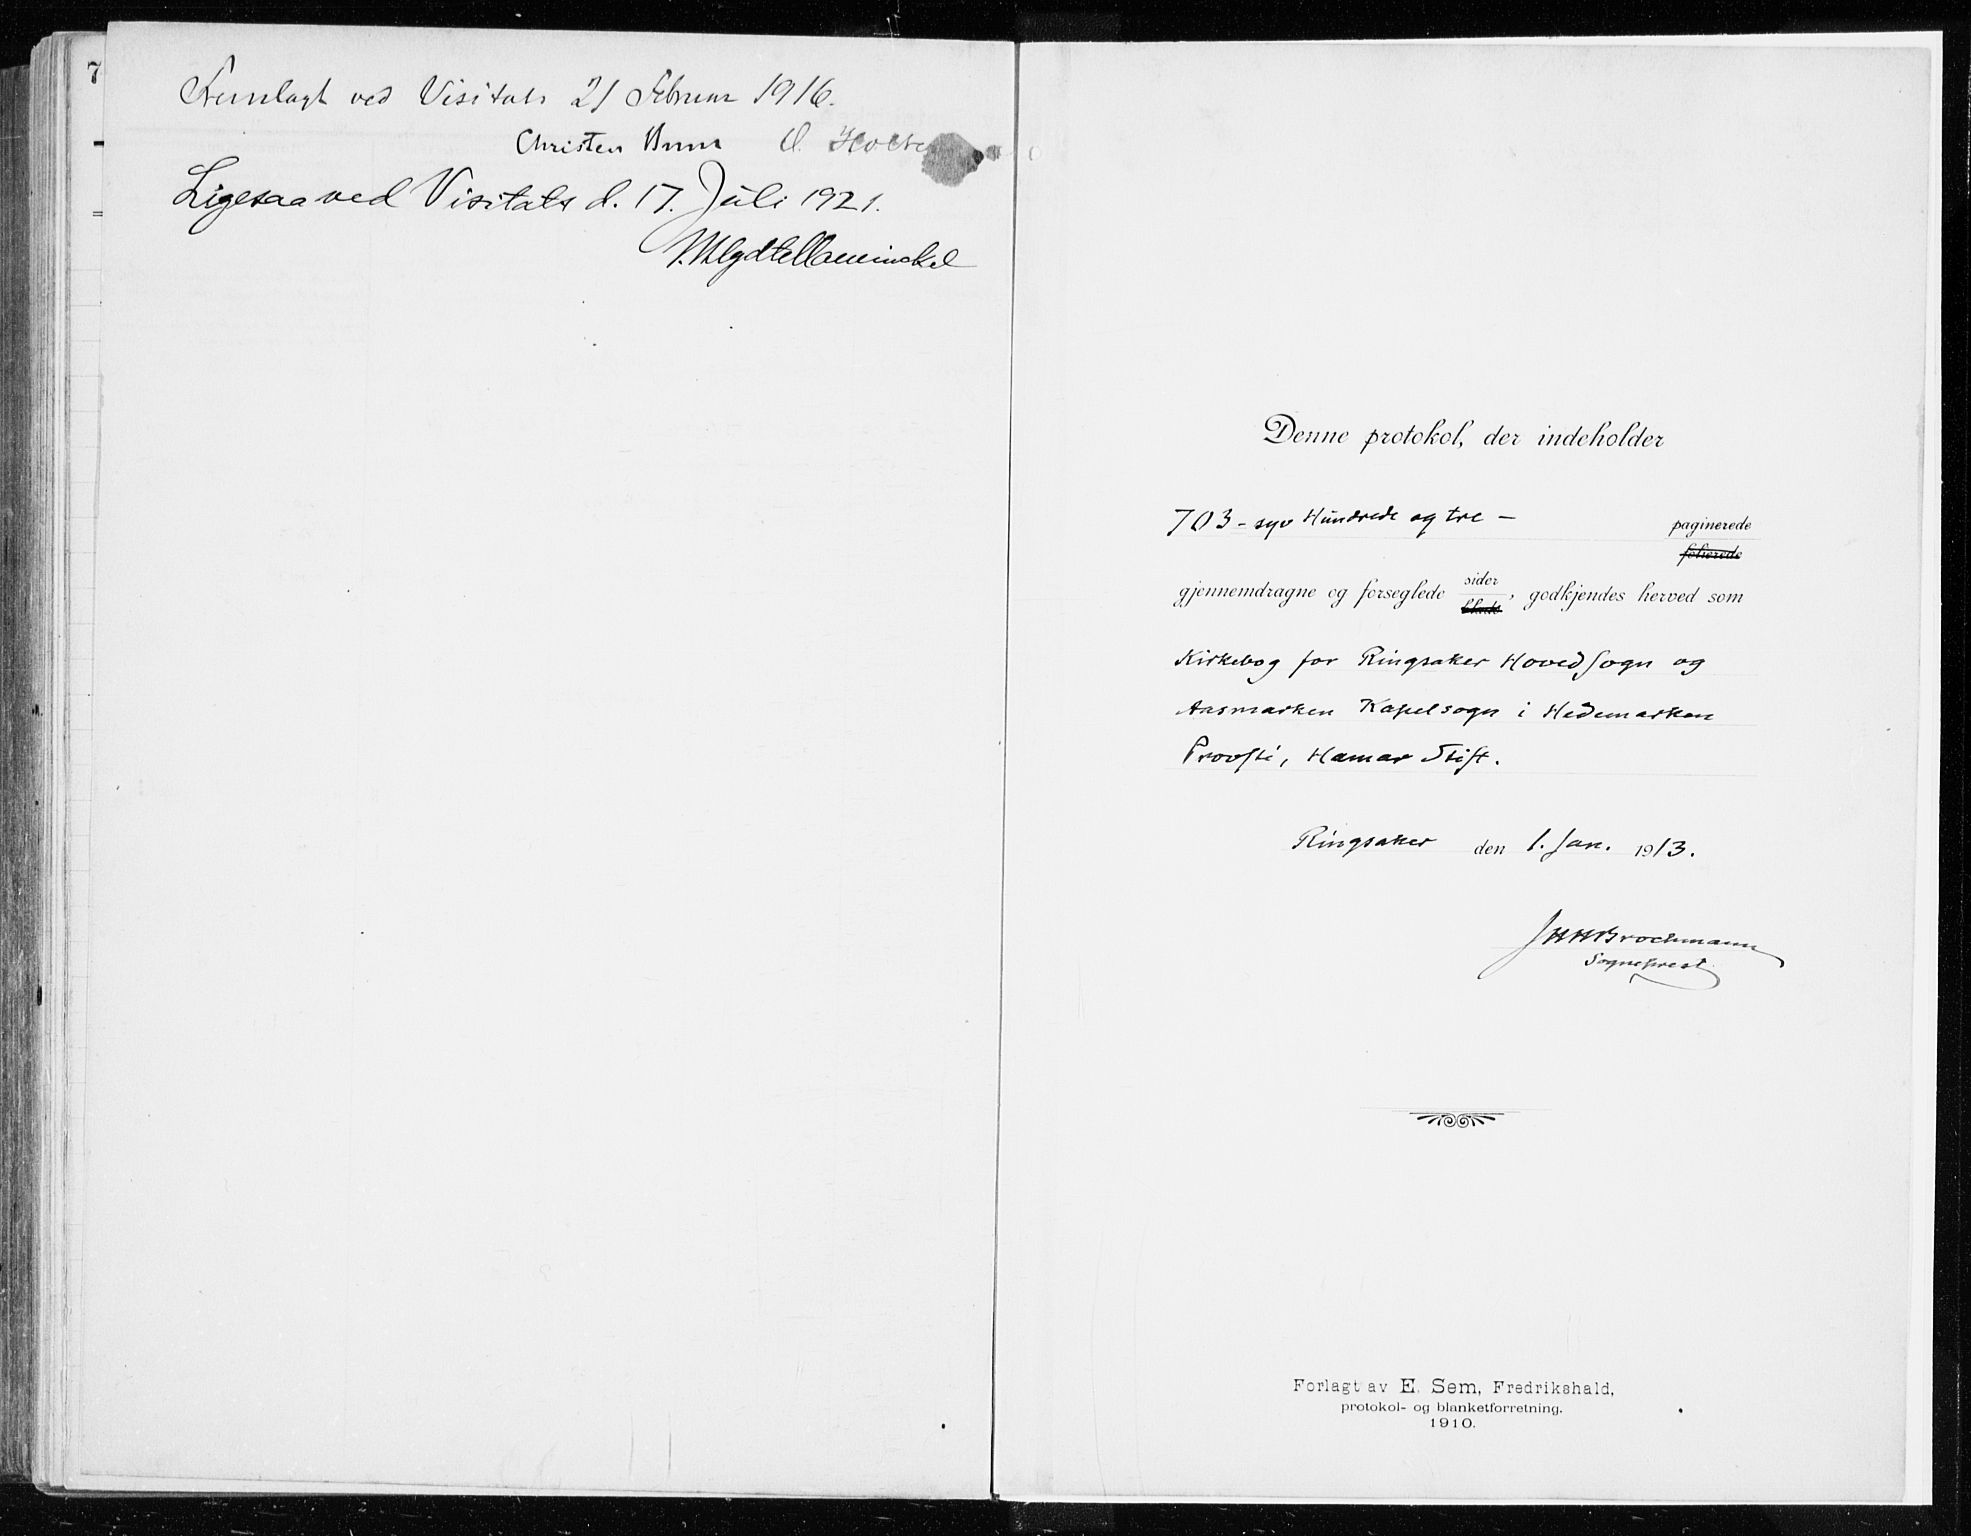 7
Fremlagt ved Visitats 21 Februar 1916.
Christen Brun O. Holte
Ligesaa ved Visitats d. 17. Juli 1921.
Denne protokol, der indeholder
703 - syv Hundrede og tre - paginerede
folierede
gjennemdragne og forseglede sider
blade, godkjendes herved som
Kirkebog for Ringsaker Hovedsogn og
Aasmarken Kapelsogn i Hedemarken
Provsti, Hamar Stift.
Ringsaker den 1. Jan. 1913.
JHHBrochmann
Sogneprest
Forlagt av E. Sem, Fredrikshald,
protokol- og blanketforretning.
1910.